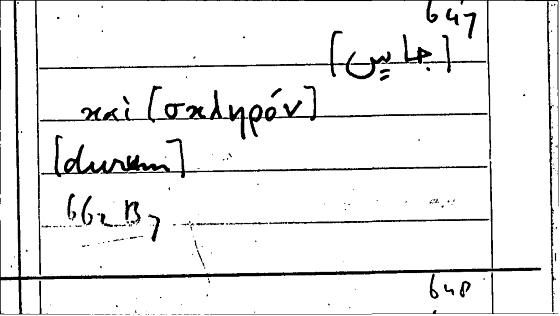 647
[جاسٍ]
καὶ [σκληρόν]
[durum]
662 B7
648